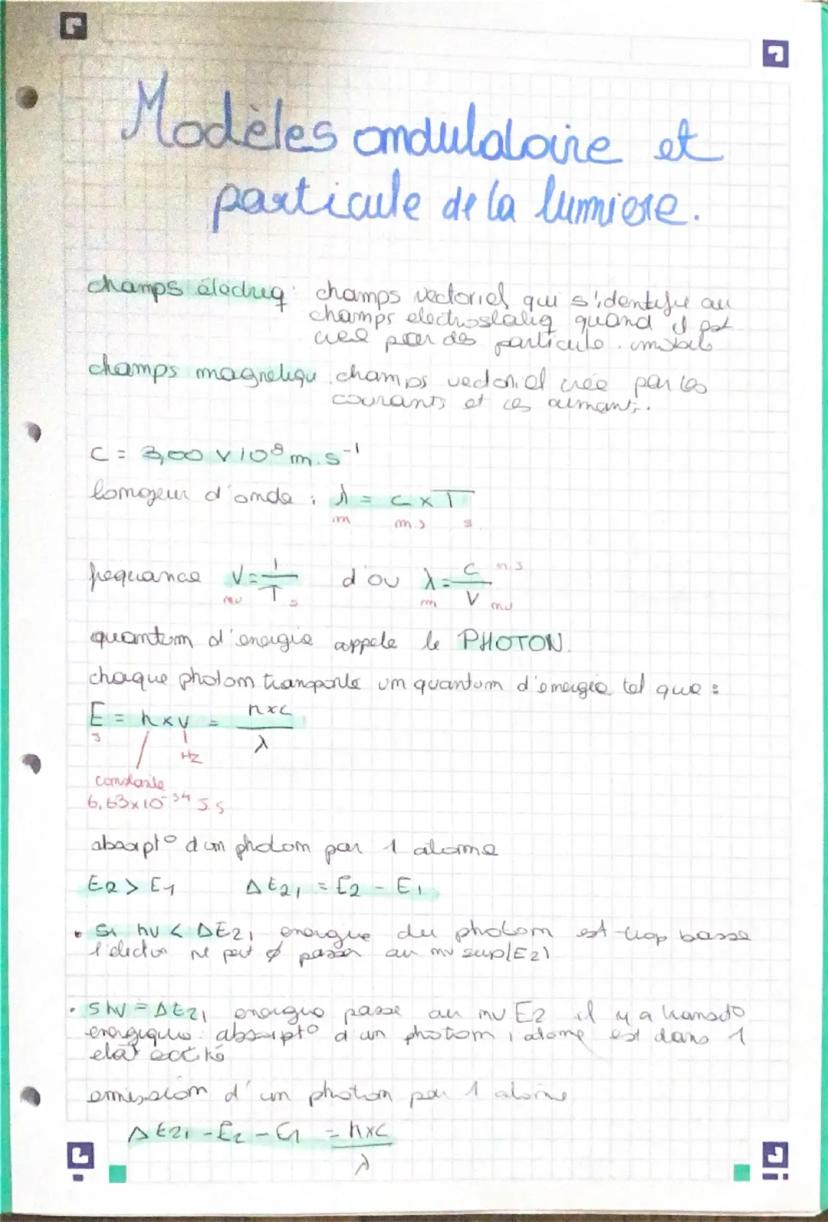 Modèles ondulatoire et
particule de la lumiere.
champs électriq : champs vectoriel qui s'identifie au
champs electrostatiq quand il est
creé par des particule. imobils
champs magnetiqu champs vectoriel creé par les
courants et les aimants.
C = 3,00 x 10⁸ m.s⁻¹
longeur d'onde : λ = c x T
m m.s s
frequance ν = 1/T d'ou λ = c/ν
quantum d'energie appele le PHOTON.
chaque photon transporte un quantum d'energie tel que :
E = h x ν = h x c / λ
J Hz
constante
6,63 x 10⁻³⁴ J S
absorpt° d'un photon par 1 atome
E2 > E1 ΔE21 = E2 - E1
• Si hν < ΔE21 energie du photon est trop basse
l'electron ne peut ∅ passer au niv sup(E2)
• S hν = ΔE21 energie passe au niv E2 il y a transit°
energique absorpt° d'un photon, atome est dans 1
etat excité
emission d'un photon par 1 atome
ΔE21 - E2 - E1 = h x c / λ